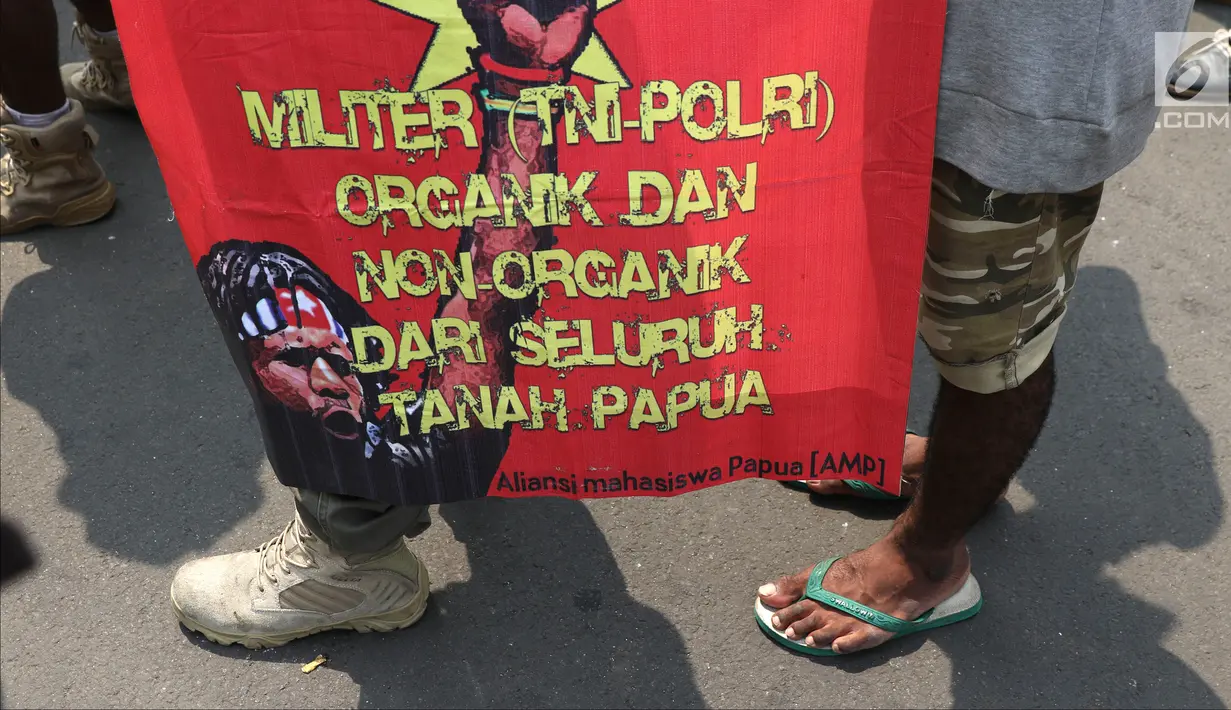 MILITER (TNI-POLRI)
ORGANIK DAN
NON-ORGANIK
DARI SELURUH
TANAH PAPUA
Aliansi mahasiswa Papua [AMP]
SWALLOW
6
.COM